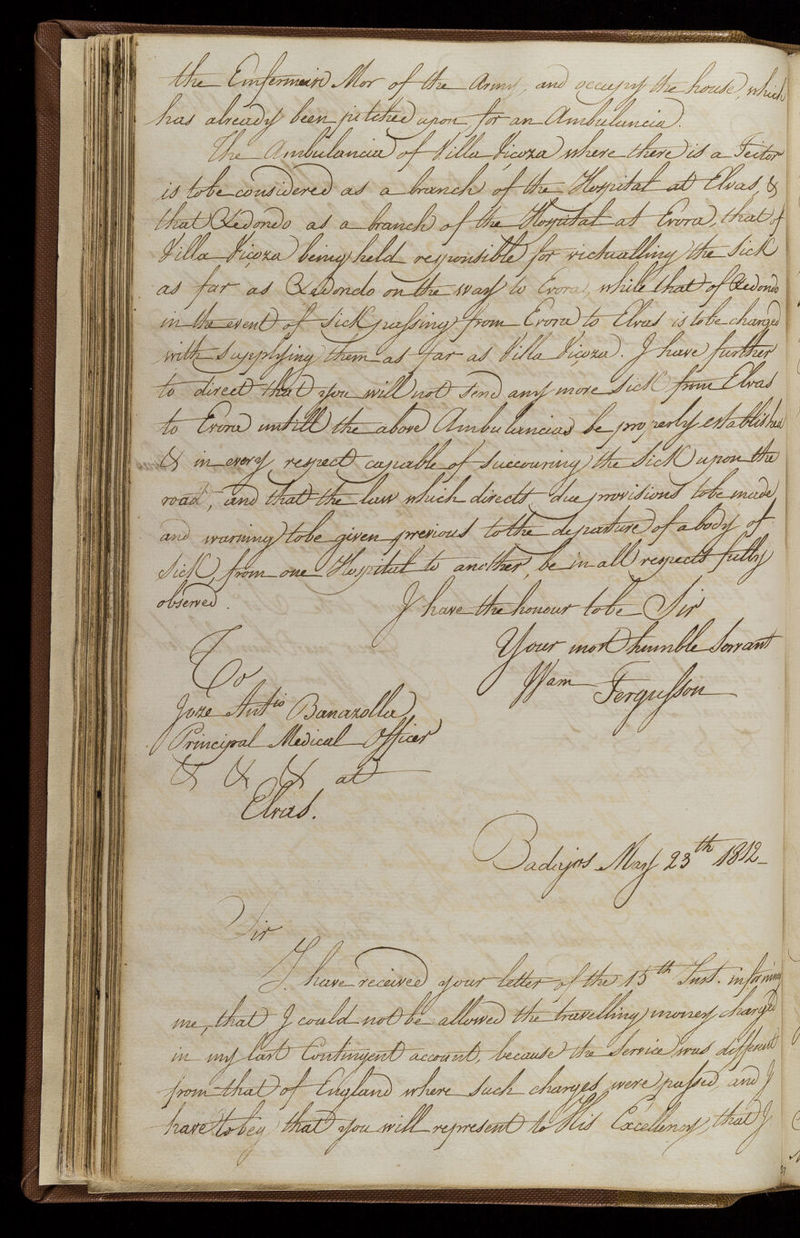 the Enfermeiro Mor of the Army, and occupy the house, which
has already been pitched upon for an Ambulancia.
The Ambulancia of Villa Viçoza where there is a Feitor
is to be considered as a branch of the Hospital at Elvas, &
that Redondo as a branch of the Hospital at Evora, that of
Villa Viçoza being held responsible for victualling the Sick
as far as Redondo on the way to Evora, while that of Redondo
in the event of Sick passing from Evora to Elvas is to be charged
with supplying them as far as Villa Viçoza. I have further
to direct that you will not send any more Sick from Elvas
to Evora untill the above Ambulancias be properly established
& in every respect capable of succouring the Sick upon the
road, and that the law which directs due provisions to be made
and warning to be given previous to the departure of a body of
Sick, from one Hospital to another, be in all respects fully
observed. I have the honour to be Sir
Your most humble Servant
Wam Fergusson
To
Joze Antio Banazolla
Principal Medical Officer
& & & at
Elvas.
Badajos May 23th 1812
Sir
I have received your letter of the 15th Inst. informing
me, that I could not be allowed the travelling money charged
in my last Contingent account, because the Service was different
from that of England where such charges were passed and I
have to beg that you will represent to His Excellency, that I